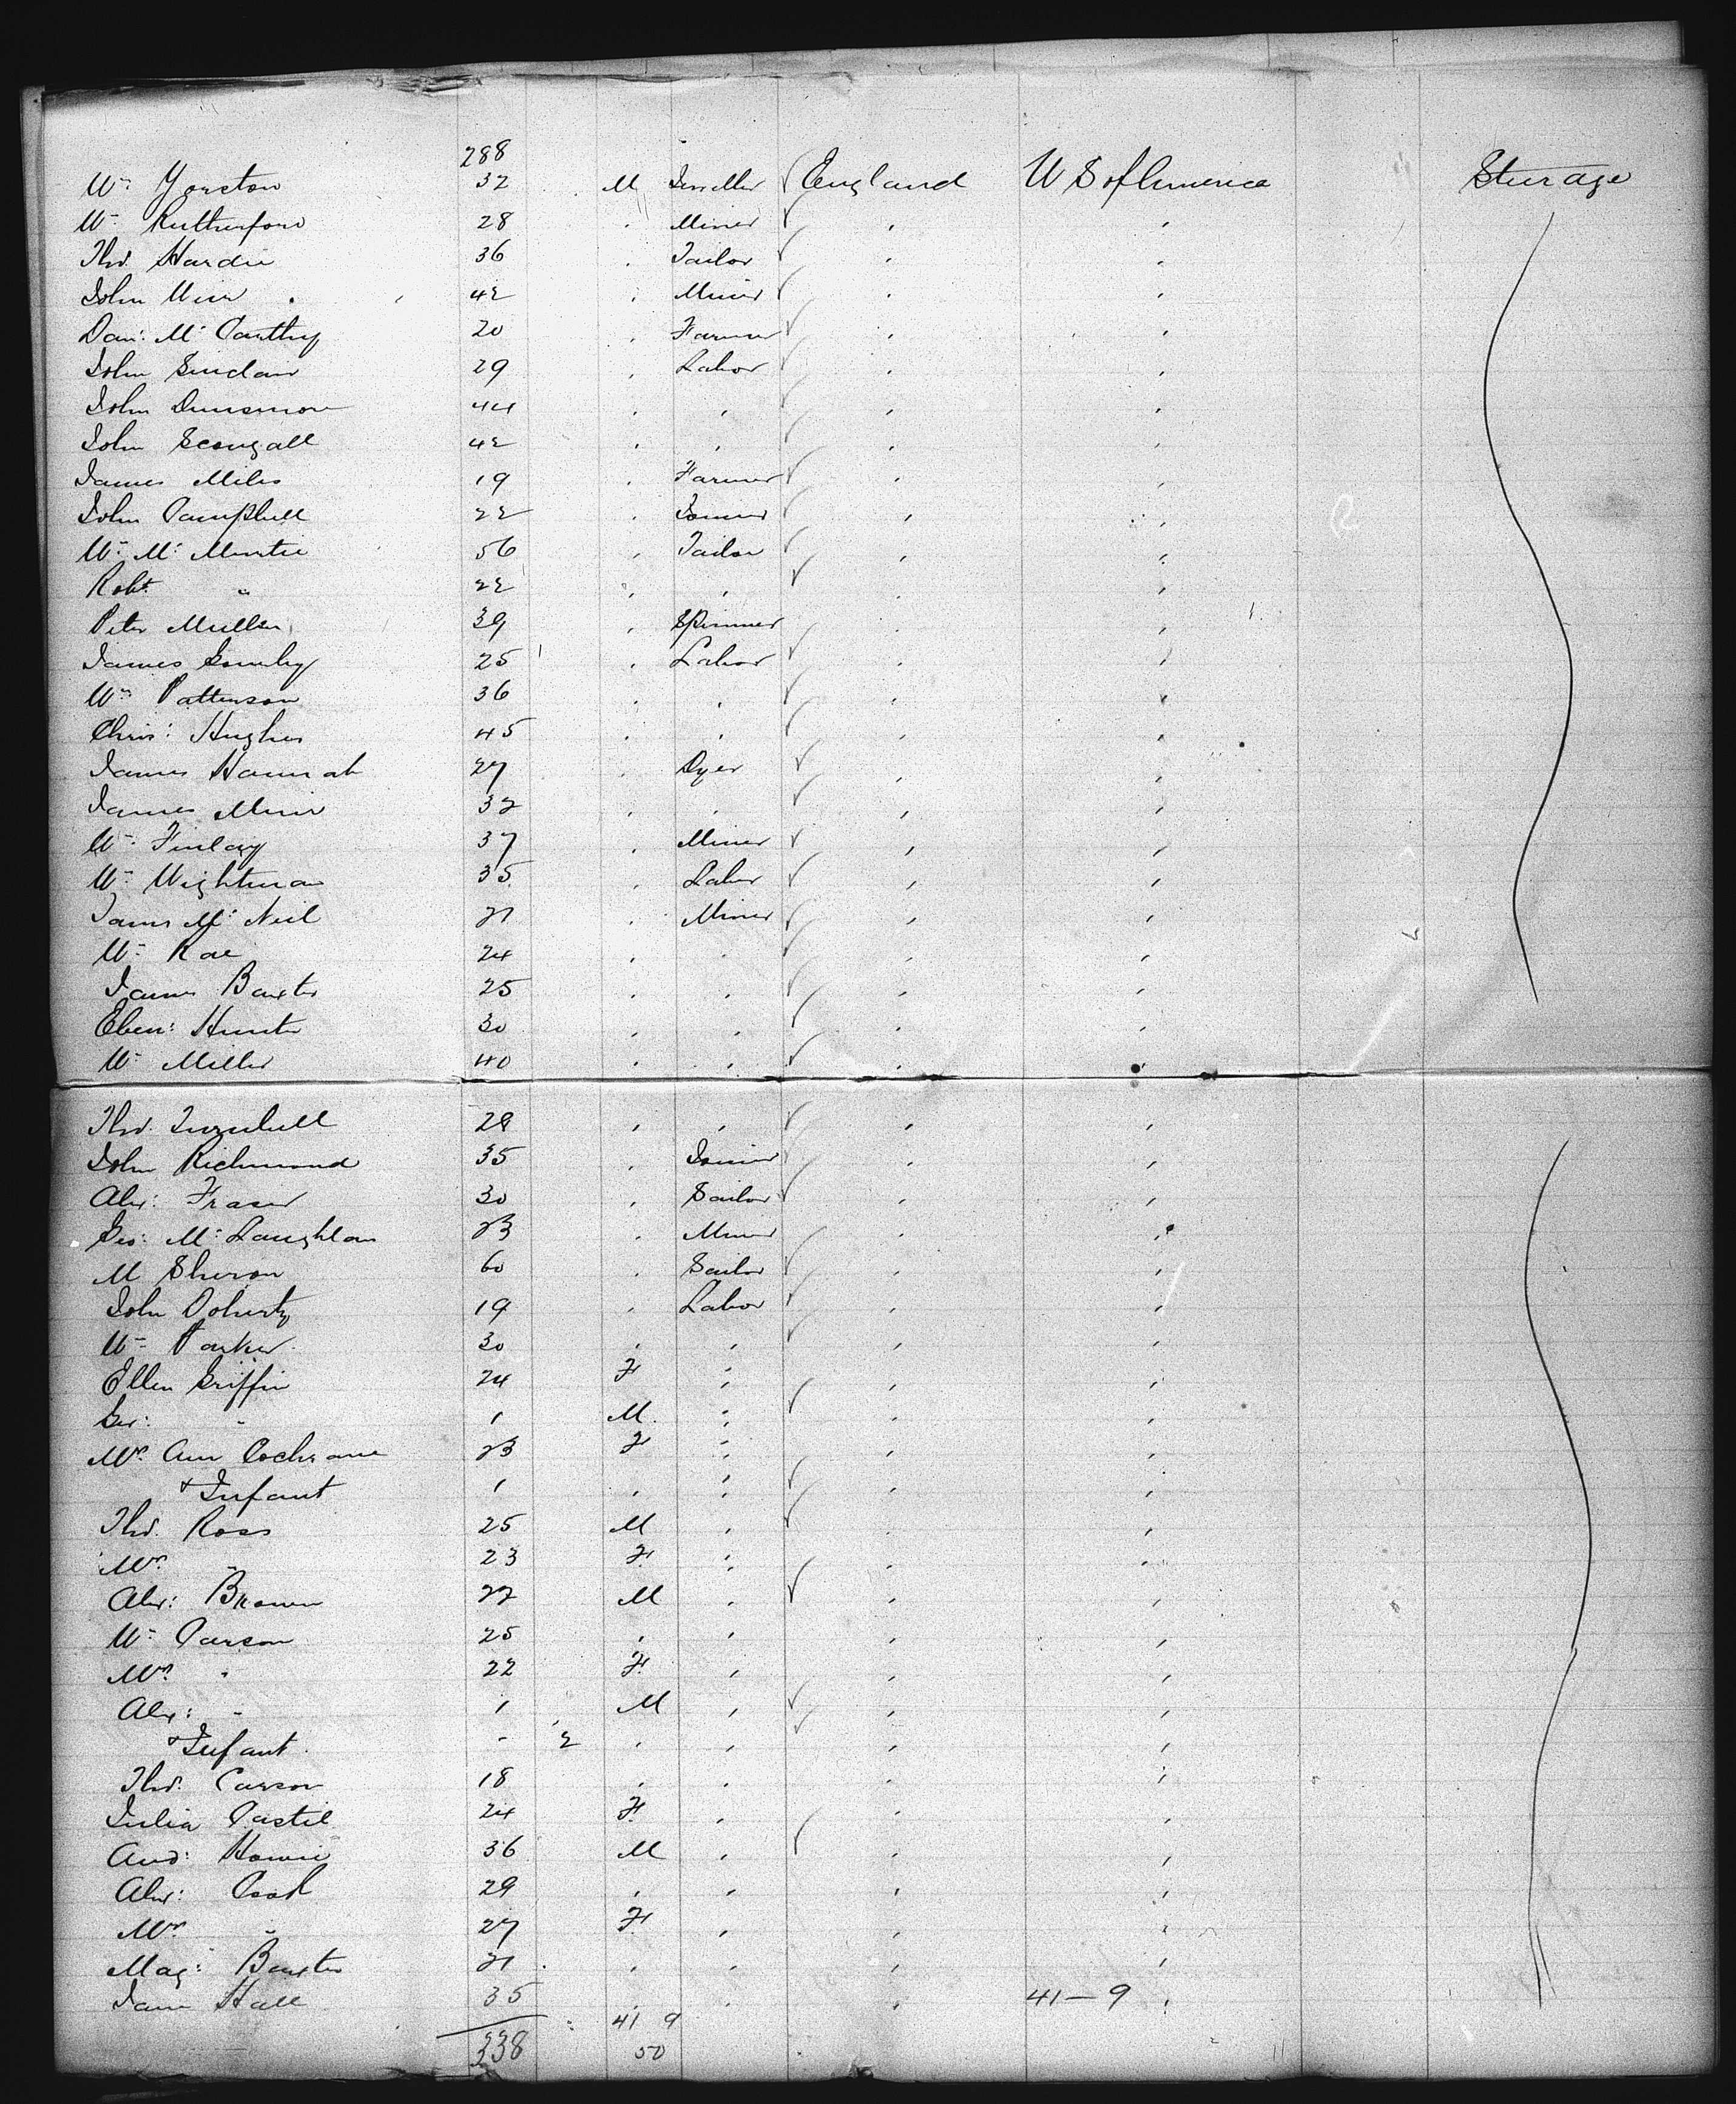 288
Wm Yorston 32 M Traveller England U S of America Steerage
Wm Rutherford 28 " Miner " "
Thos. Hardie 36 " Tailor " "
John Weir 42 " Miner " "
Dan: McCarthy 20 " Farmer " "
John Sinclair 29 " Labor " "
John Dunsmore 44 " " " "
John Scougall 42 " " " "
James Miles 19 " Farmer " "
John Campbell 22 " Joiner " "
Wm McMurtrie 56 " Tailor " "
Robt. " 22 " " " "
Peter Mullen 39 " Spinner " "
James Gourley 25 " Labor " "
Wm Patterson 36 " " " "
Chris: Hughes 45 " " " "
James Hannah 27 " Dyer " "
James Muir 32 " " " "
Wm Finlay 37 " Miner " "
Wm Wightman 35 " Labor " "
James McNeil 21 " Miner " "
Wm Rae 24 " " " "
James Baxter 25 " " " "
Eben: Hunter 30 " " " "
Wm Miller 40 " " " "
Thos. Turnbull 28 " " " "
John Richmond 35 " Joiner " "
Alex: Fraser 30 " Sailor " "
Geo: McLaughlan 23 " Miner " "
M Sheron 60 " Sailor " "
John Doherty 19 " Labor " "
Wm Parker 30 " " " "
Ellen Griffin 24 F " " "
Geo: " 1 M " " "
Mrs Ann Cochrane 23 F " " "
& Infant 1 " " " "
Thos. Ross 25 M " " "
Mrs " 23 F " " "
Alex: Brown 22 M " " "
Wm Carson 25 " " " "
Mrs " 22 F " " "
Alex: " 1 M " " "
& Infant - 2 " " " "
Thos. Carson 18 " " " "
Julia Castil 24 F " " "
And: Howie 36 M " " "
Alex: Cook 29 " " " "
Mrs " 27 F " " "
Mag: Baxter 21 " " " "
Jane Hall 35 " " " 41-9 "
41 9
338 50